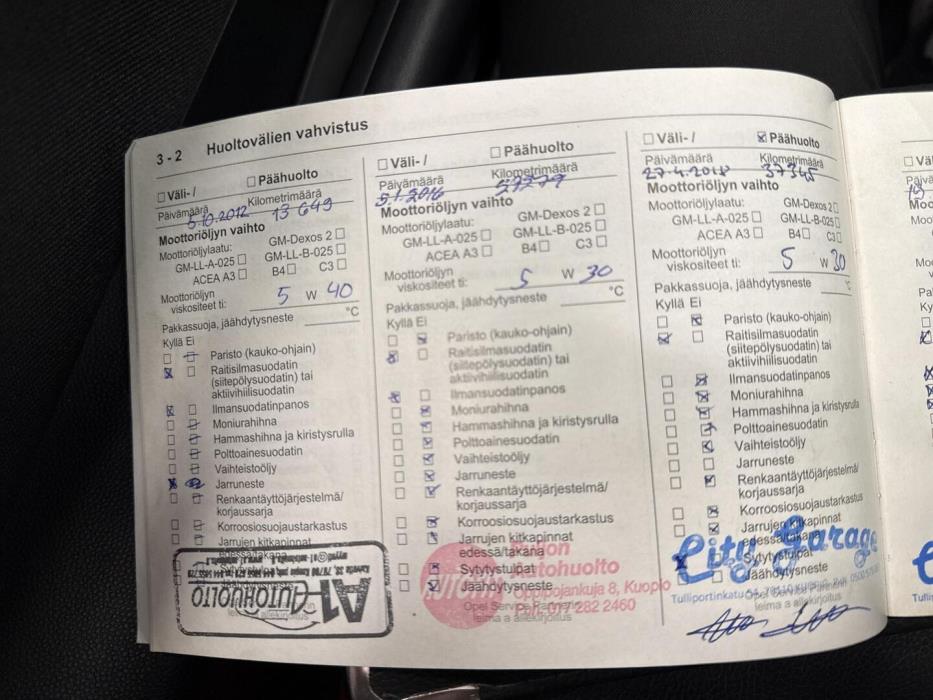 3 - 2 Huoltovälien vahvistus
Väli- / Päähuolto
Päivämäärä Kilometrimäärä
5.10.2012 13 649
Moottoriöljyn vaihto
Moottoriöljylaatu: GM-Dexos 2
GM-LL-A-025 GM-LL-B-025
ACEA A3 B4 C3
Moottoriöljyn
viskositeet ti: 5 W 40
Pakkassuoja, jäähdytysneste °C
Kyllä Ei
Paristo (kauko-ohjain)
Raitisilmasuodatin
(siitepölysuodatin) tai
aktiivihiilisuodatin
Ilmansuodatinpanos
Moniurahihna
Hammashihna ja kiristysrulla
Polttoainesuodatin
Vaihteistoöljy
Jarruneste
Renkaantäyttöjärjestelmä/
korjaussarja
Korroosiosuojaustarkastus
Jarrujen kitkapinnat
edessä/takana
A1 AUTOHUOLTO
Väli- / Päähuolto
Päivämäärä Kilometrimäärä
5.1.2016
Moottoriöljyn vaihto
Moottoriöljylaatu: GM-Dexos 2
GM-LL-A-025 GM-LL-B-025
ACEA A3 B4 C3
Moottoriöljyn
viskositeet ti: 5 W 30
Pakkassuoja, jäähdytysneste °C
Kyllä Ei
Paristo (kauko-ohjain)
Raitisilmasuodatin
(siitepölysuodatin) tai
aktiivihiilisuodatin
Ilmansuodatinpanos
Moniurahihna
Hammashihna ja kiristysrulla
Polttoainesuodatin
Vaihteistoöljy
Jarruneste
Renkaantäyttöjärjestelmä/
korjaussarja
Korroosiosuojaustarkastus
Jarrujen kitkapinnat
edessä/takana
Sytytystulpat
Jäähdytysneste
Autohuolto
Oppipojankuja 8, Kuopio
Opel Service Partnerin
Puh. 017 282 2460
leima a allekirjoitus
Väli- / Päähuolto
Päivämäärä Kilometrimäärä
27.4.2018 37345
Moottoriöljyn vaihto
Moottoriöljylaatu: GM-Dexos 2
GM-LL-A-025 GM-LL-B-025
ACEA A3 B4 C3
Moottoriöljyn
viskositeet ti: 5 W 30
Pakkassuoja, jäähdytysneste °C
Kyllä Ei
Paristo (kauko-ohjain)
Raitisilmasuodatin
(siitepölysuodatin) tai
aktiivihiilisuodatin
Ilmansuodatinpanos
Moniurahihna
Hammashihna ja kiristysrulla
Polttoainesuodatin
Vaihteistoöljy
Jarruneste
Renkaantäyttöjärjestelmä/
korjaussarja
Korroosiosuojaustarkastus
Jarrujen kitkapinnat
edessä/takana
City Garage
Sytytystulpat
Jäähdytysneste
Opel Service Partnerin
leima a allekirjoitus